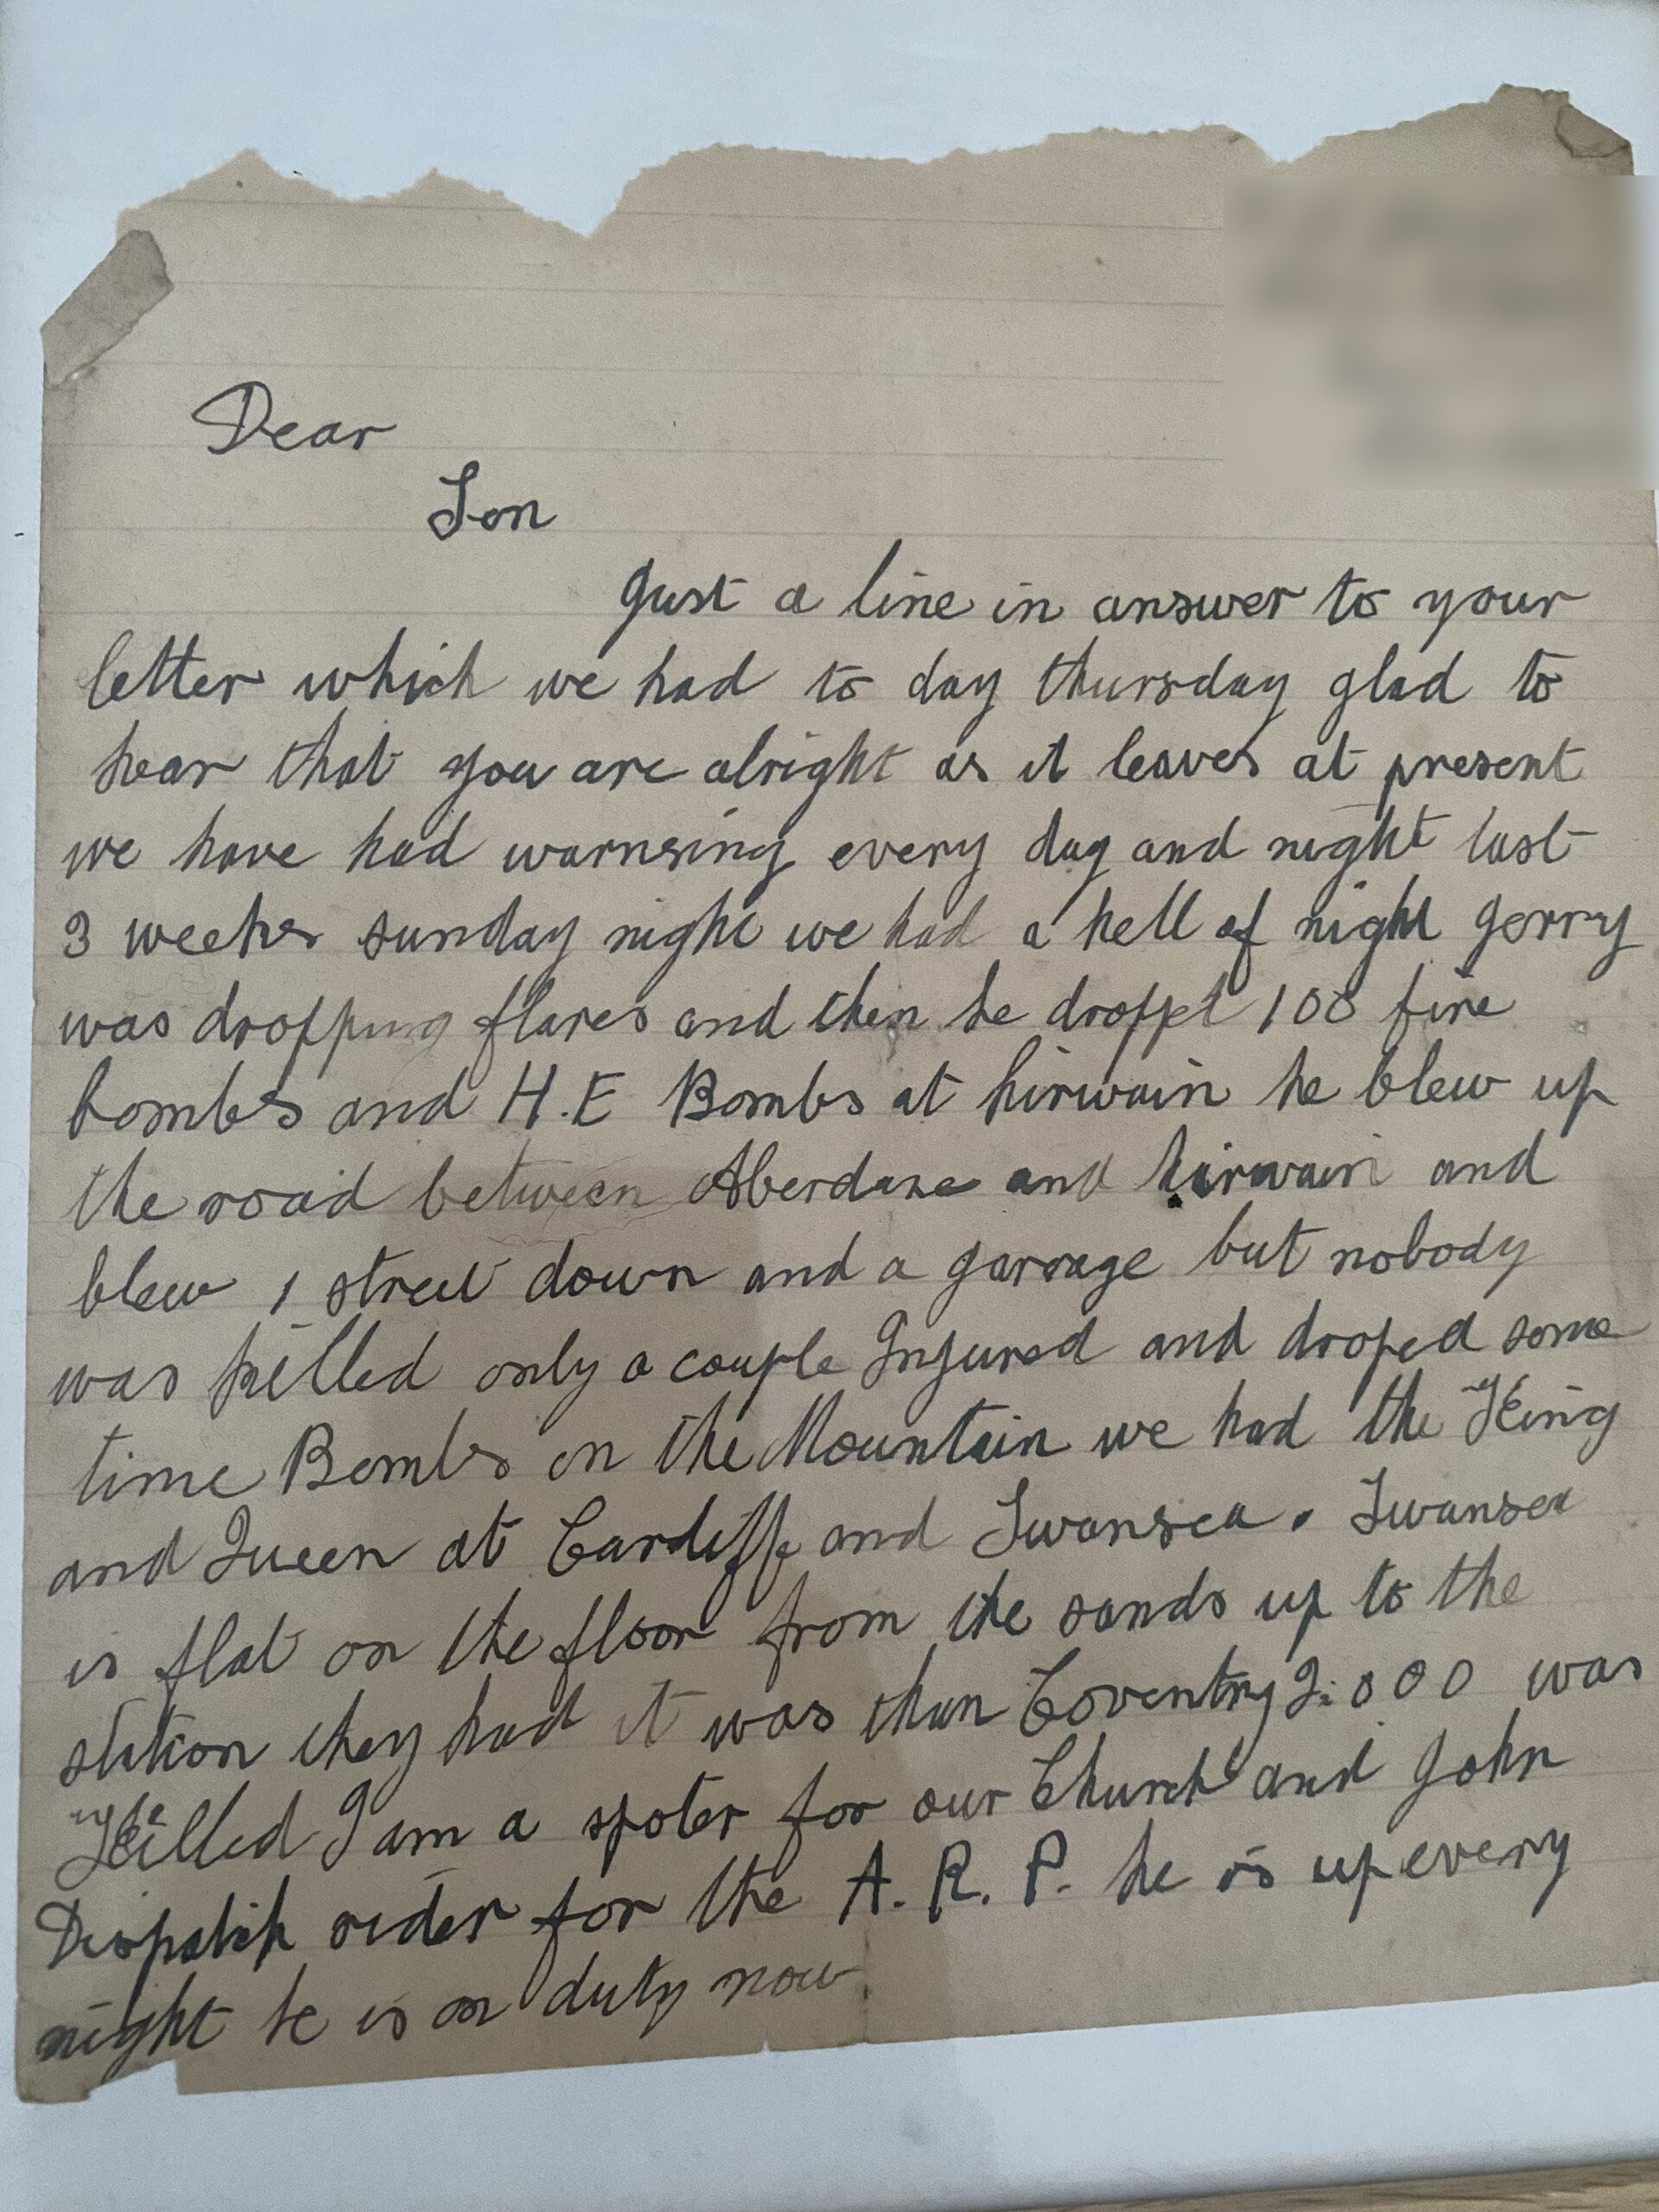 Dear
Son
Just a line in answer to your
letter which we had to day thursday glad to
hear that you are alright as it leaves at present
we have had warnsing every day and night last
3 weeks sunday night we had a hell of night Jerry
was dropping flares and then he droppet 100 fire
bombs and H.E Bombs at hirwain he blew up
the road between Aberdare and hirwain and
blew 1 street down and a garrage but nobody
was killed only a couple Injured and droped some
time Bombs on the Mountain we had the King
and Queen at Cardiff and Swansea. Swansea
is flat on the floor from the sands up to the
station they had it was than Coventry 2.000 was
Killed I am a spoter for our Church and John
Dispatch rider for the A.R.P. he is up every
night he is on duty now